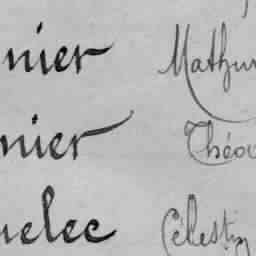 nier Mathur
nier Théo
uelec Célestin